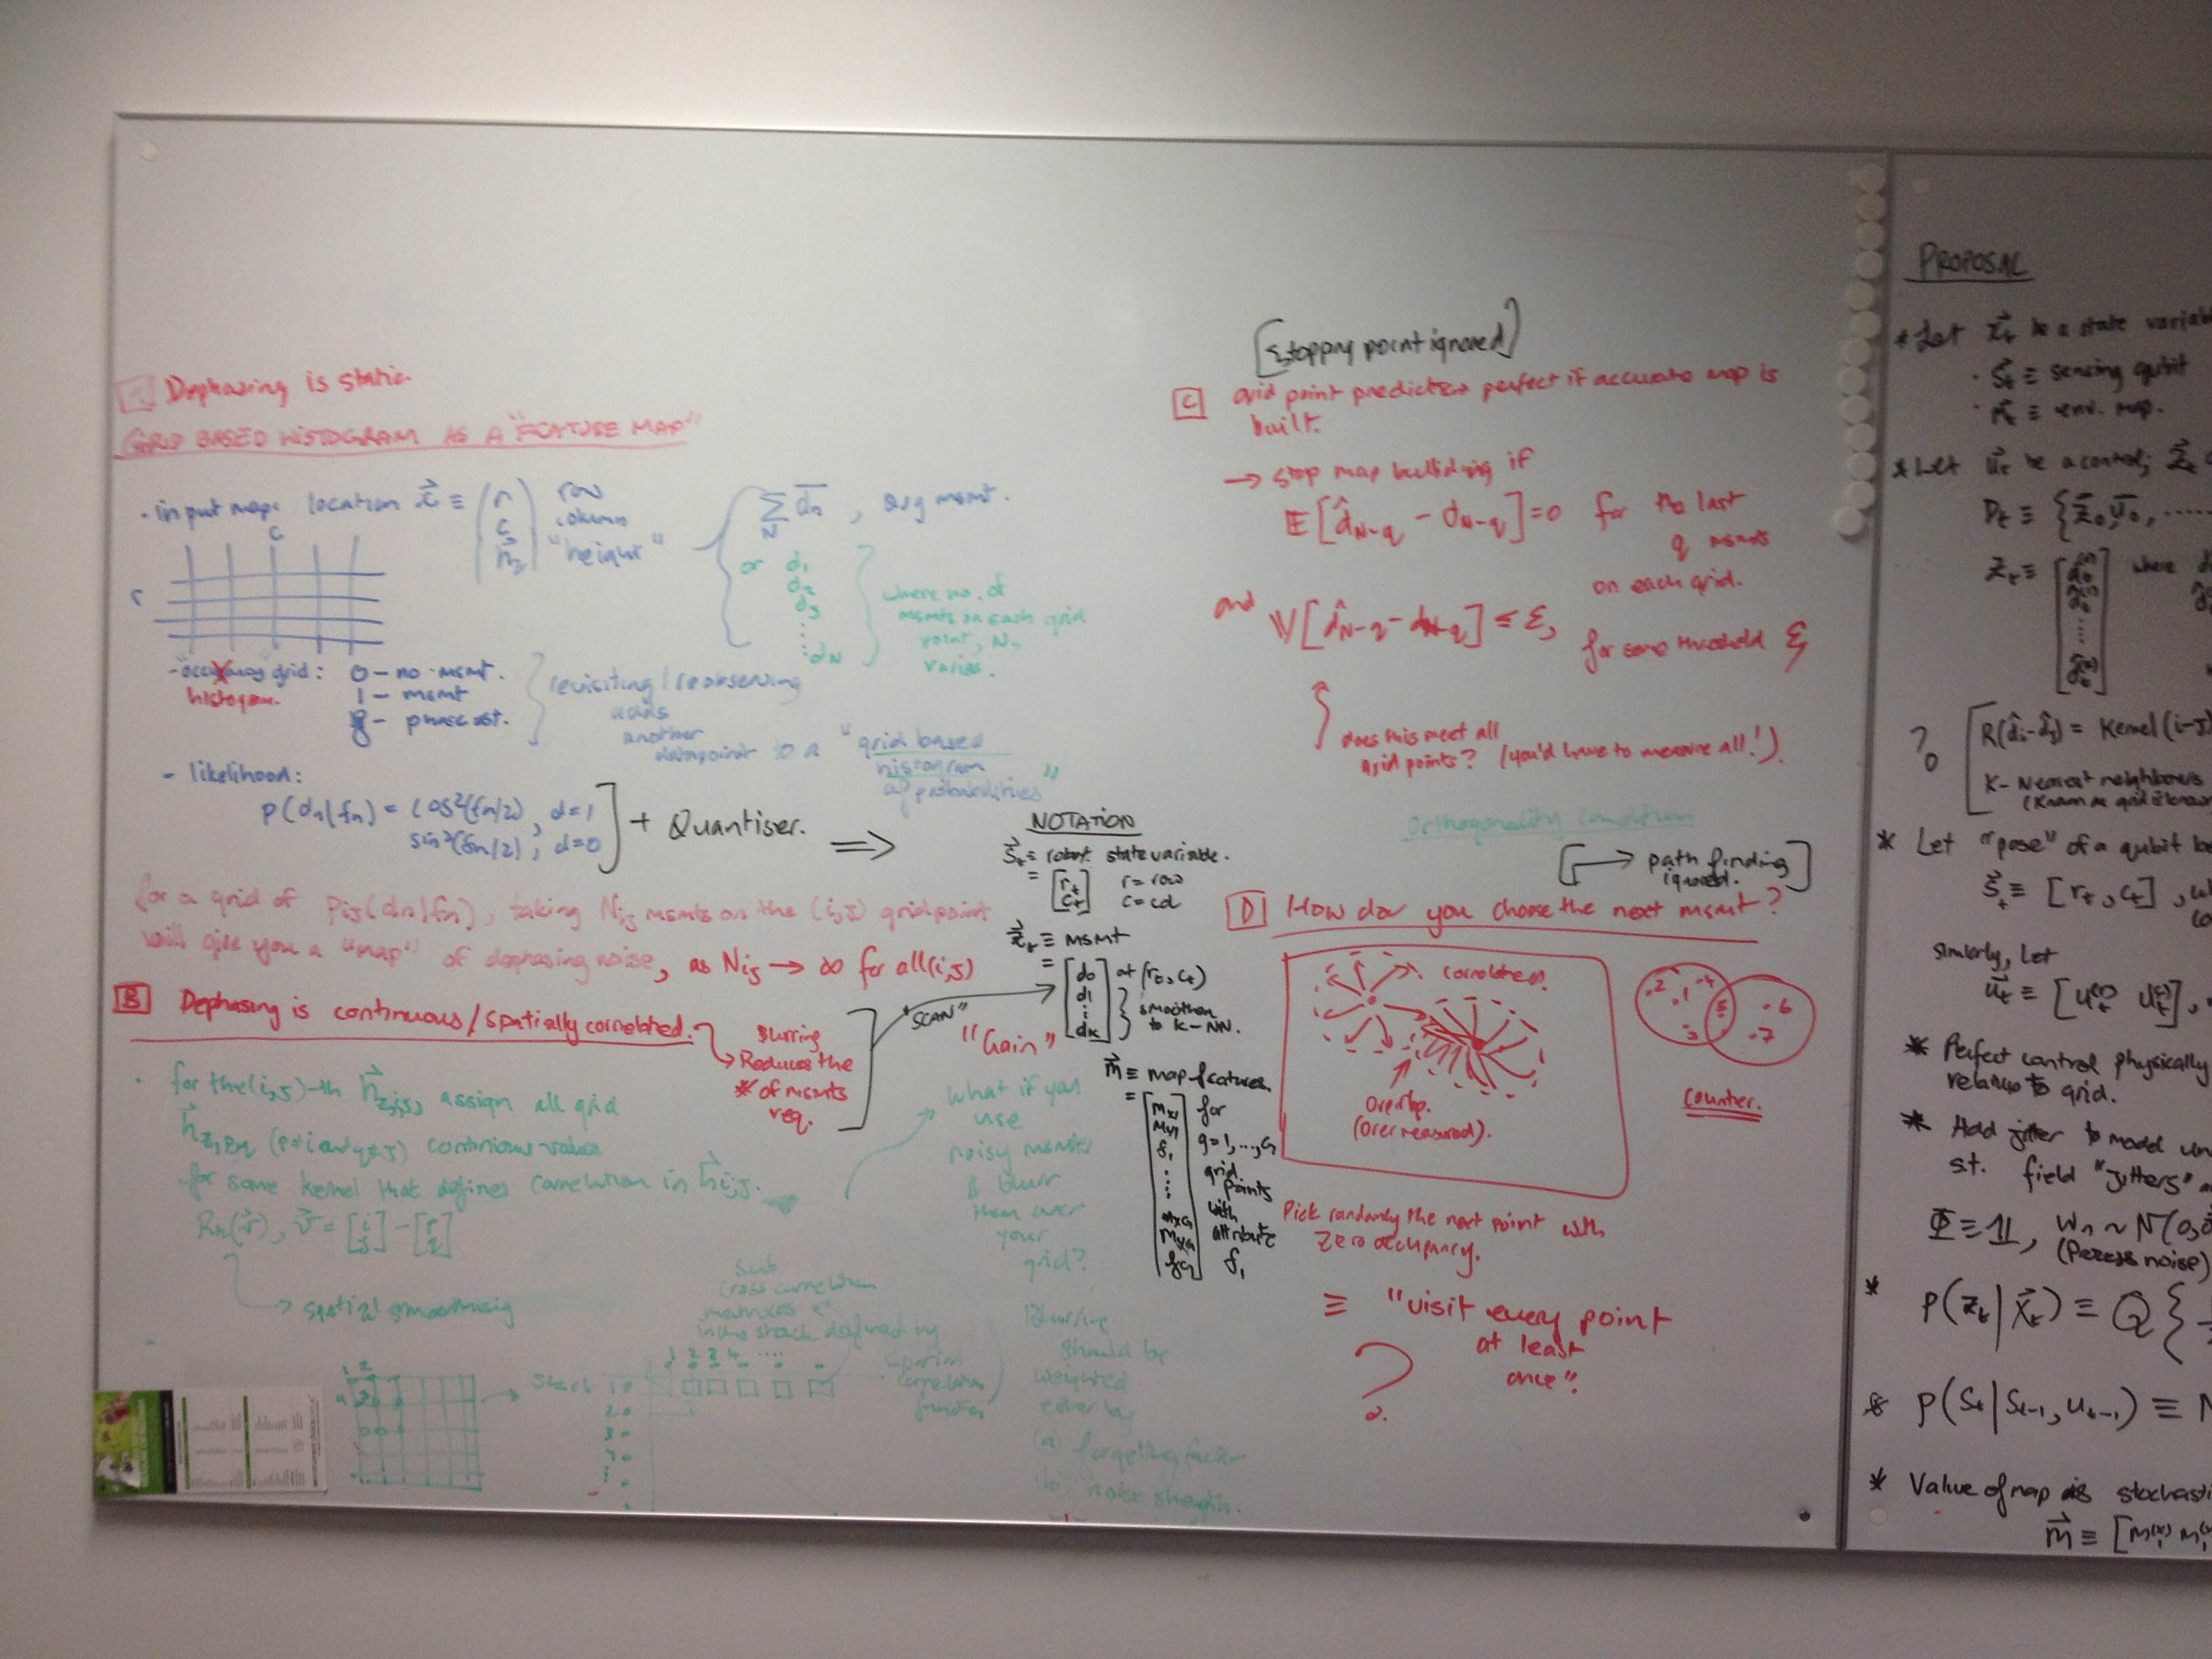 A Dephasing is static.
GRID BASED HISTOGRAM AS A "FEATURE MAP"
- input map: location x⃗ ≡ (r row
c, column
h⃗z) "height"
c
r
Σ d̄n, avg msmt.
N
or d1
d2
d3
⋮
dN
where no. of
msmts on each grid
point, N,
varies.
- "occupancy" grid: 0 – no msmt.
histogram. 1 – msmt
– phase est.
revisiting / reobserving
adds
another
datapoint to a "grid based
histogram
of probabilities"
- likelihood:
p(dn|fn) = cos²(fn/2), d=1
sin²(fn/2), d=0
+ Quantiser. ⇒
for a grid of Pij(dn|fn), taking Nij msmts on the (i,j) gridpoint
will give you a "map" of dephasing noise, as Nij → ∞ for all (i,j)
B Dephasing is continuous / spatially correlated.
Blurring
→ Reduces the
# of msmts
req.
"SCAN"
"Gain"
· for the (i,j)-th h⃗z,ij, assign all grid
h⃗z,pq (p≠i and q≠j) continuous values
for some kernel that defines correlation in h⃗ij.
Rn(v⃗), v⃗ = [i j] - [p q]
→ spatial smoothing
what if you
use
noisy msmts
& blur
them over
your
grid?
sub
cross correlation
matrices
in the stack defined by
spatial
correlation
function
1 2 3 4 ....
1 2
→ stack 1
2
3
4
⋮
Blurring
should be
weighted
either by
(a) forgetting factor
(b) noise strength.
NOTATION
S⃗t ≡ robot state variable.
= [rt r = row
ct] c = col
z⃗t ≡ msmt
= [d0 at (rt, ct)
d1
⋮ smoothen
dk] to k-NN.
m⃗ ≡ map features
= [mx1 for
my1 g=1,...,G
f1 grid
⋮ points
mxG with
myG attribute
fG] f1
[Stopping point ignored]
C grid point predictions perfect if accurate map is
built.
→ stop map building if
E[d̂N-q - dN-q] = 0 for the last
q msmts
on each grid.
and V[d̂N-q - dN-q] ≤ Σ, for some threshold Σ
does this meet all
grid points? (you'd have to measure all!).
Orthogonality condition
[→ path finding
ignored.]
D How do you choose the next msmt?
correlated.
Overlap.
(Over measured).
.2 .1 .4 5 .6
.3 .7
counter.
Pick randomly the next point with
zero occupancy.
≡ "visit every point
at least
once".
?
PROPOSAL
* Let x⃗t be a state variabl
· S⃗t ≡ sensing qubit
· m⃗ ≡ env. map.
* Let u⃗t be a control; z⃗t
Dt ≡ {z⃗0, u⃗0, .....
Zt ≡ where
? [R(d̂i-d̂j) = Kernel(i-j)
K-Nearest neighbours
* Let "pose" of a qubit be
S⃗t ≡ [rt, ct],
similarly, let
u⃗t ≡ [u(r)t u(c)t],
* Perfect control physically
relative to grid.
* Add jitter to model un
st. field "jitters"
Φ ≡ 𝟙, wn ~ N(0,
(Process noise)
* p(zt|x⃗t) ≡ Q {
* p(St|St-1, ut-1) ≡ N
* Value of map is stochasti
m⃗ ≡ [m(x)1 m